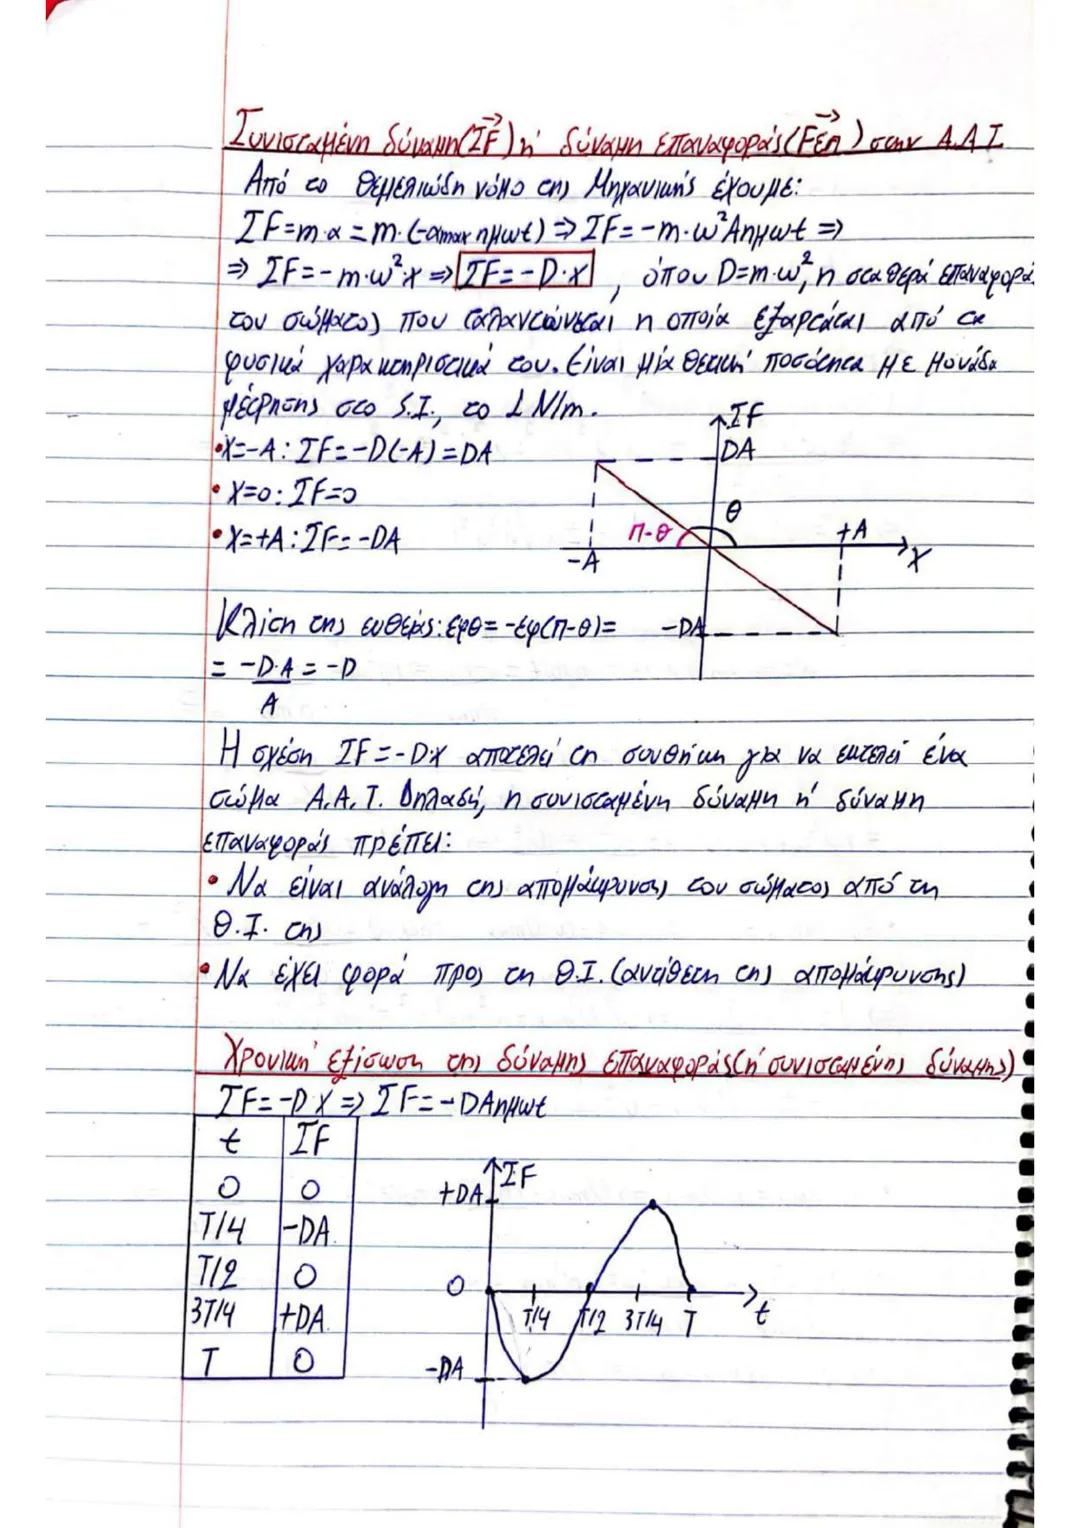 Συνισταμένη δύναμη (ΣF) ή δύναμη επαναφοράς (Fεπ) στην Α.Α.Τ.
Από το θεμελιώδη νόμο της Μηχανικής έχουμε:
ΣF=m·α=m·(-αmax ημωt)⇒ΣF=-m·ω²Αημωt⇒
⇒ ΣF=-m·ω²·x⇒ΣF=-D·x, όπου D=m·ω², η σταθερά επαναφοράς
του σώματος που ταλαντώνεται η οποία εξαρτάται από τα
φυσικά χαρακτηριστικά του. Είναι μία θετική ποσότητα με μονάδα
μέτρησης στο S.I., το 1 N/m.
•x=-A: ΣF=-D(-A)=DA
•x=0: ΣF=0
•x=+A: ΣF=-DA
ΣF
DA
θ
π-θ
+A
-A
x
-DA
Κλίση της ευθείας: εφθ=-εφ(π-θ)=
= -D·A = -D
A
Η σχέση ΣF=-D·x αποτελεί τη συνθήκη για να εκτελεί ένα
σώμα Α.Α.Τ. Δηλαδή, η συνισταμένη δύναμη ή δύναμη
επαναφοράς πρέπει:
• Να είναι ανάλογη της απομάκρυνσης του σώματος από τη
Θ.Ι. της
• Να έχει φορά προς τη Θ.Ι. (αντίθετη της απομάκρυνσης)
Χρονική εξίσωση της δύναμης επαναφοράς (ή συνισταμένης δύναμης)
ΣF=-D·x⇒ΣF=-DAημωt
t ΣF
0 0
T/4 -DA
T/2 0
3T/4 +DA
T 0
ΣF
+DA
0
T/4 T/2 3T/4 T t
-DA